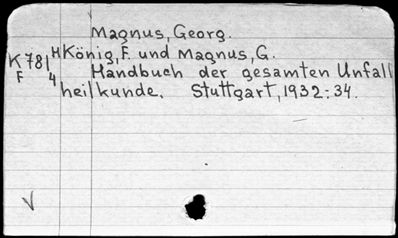 Magnus, Georg.
K 78/4 König, F. und Magnus, G.
F
Handbuch der gesamten Unfall
heilkunde. Stuttgart, 1932-34.